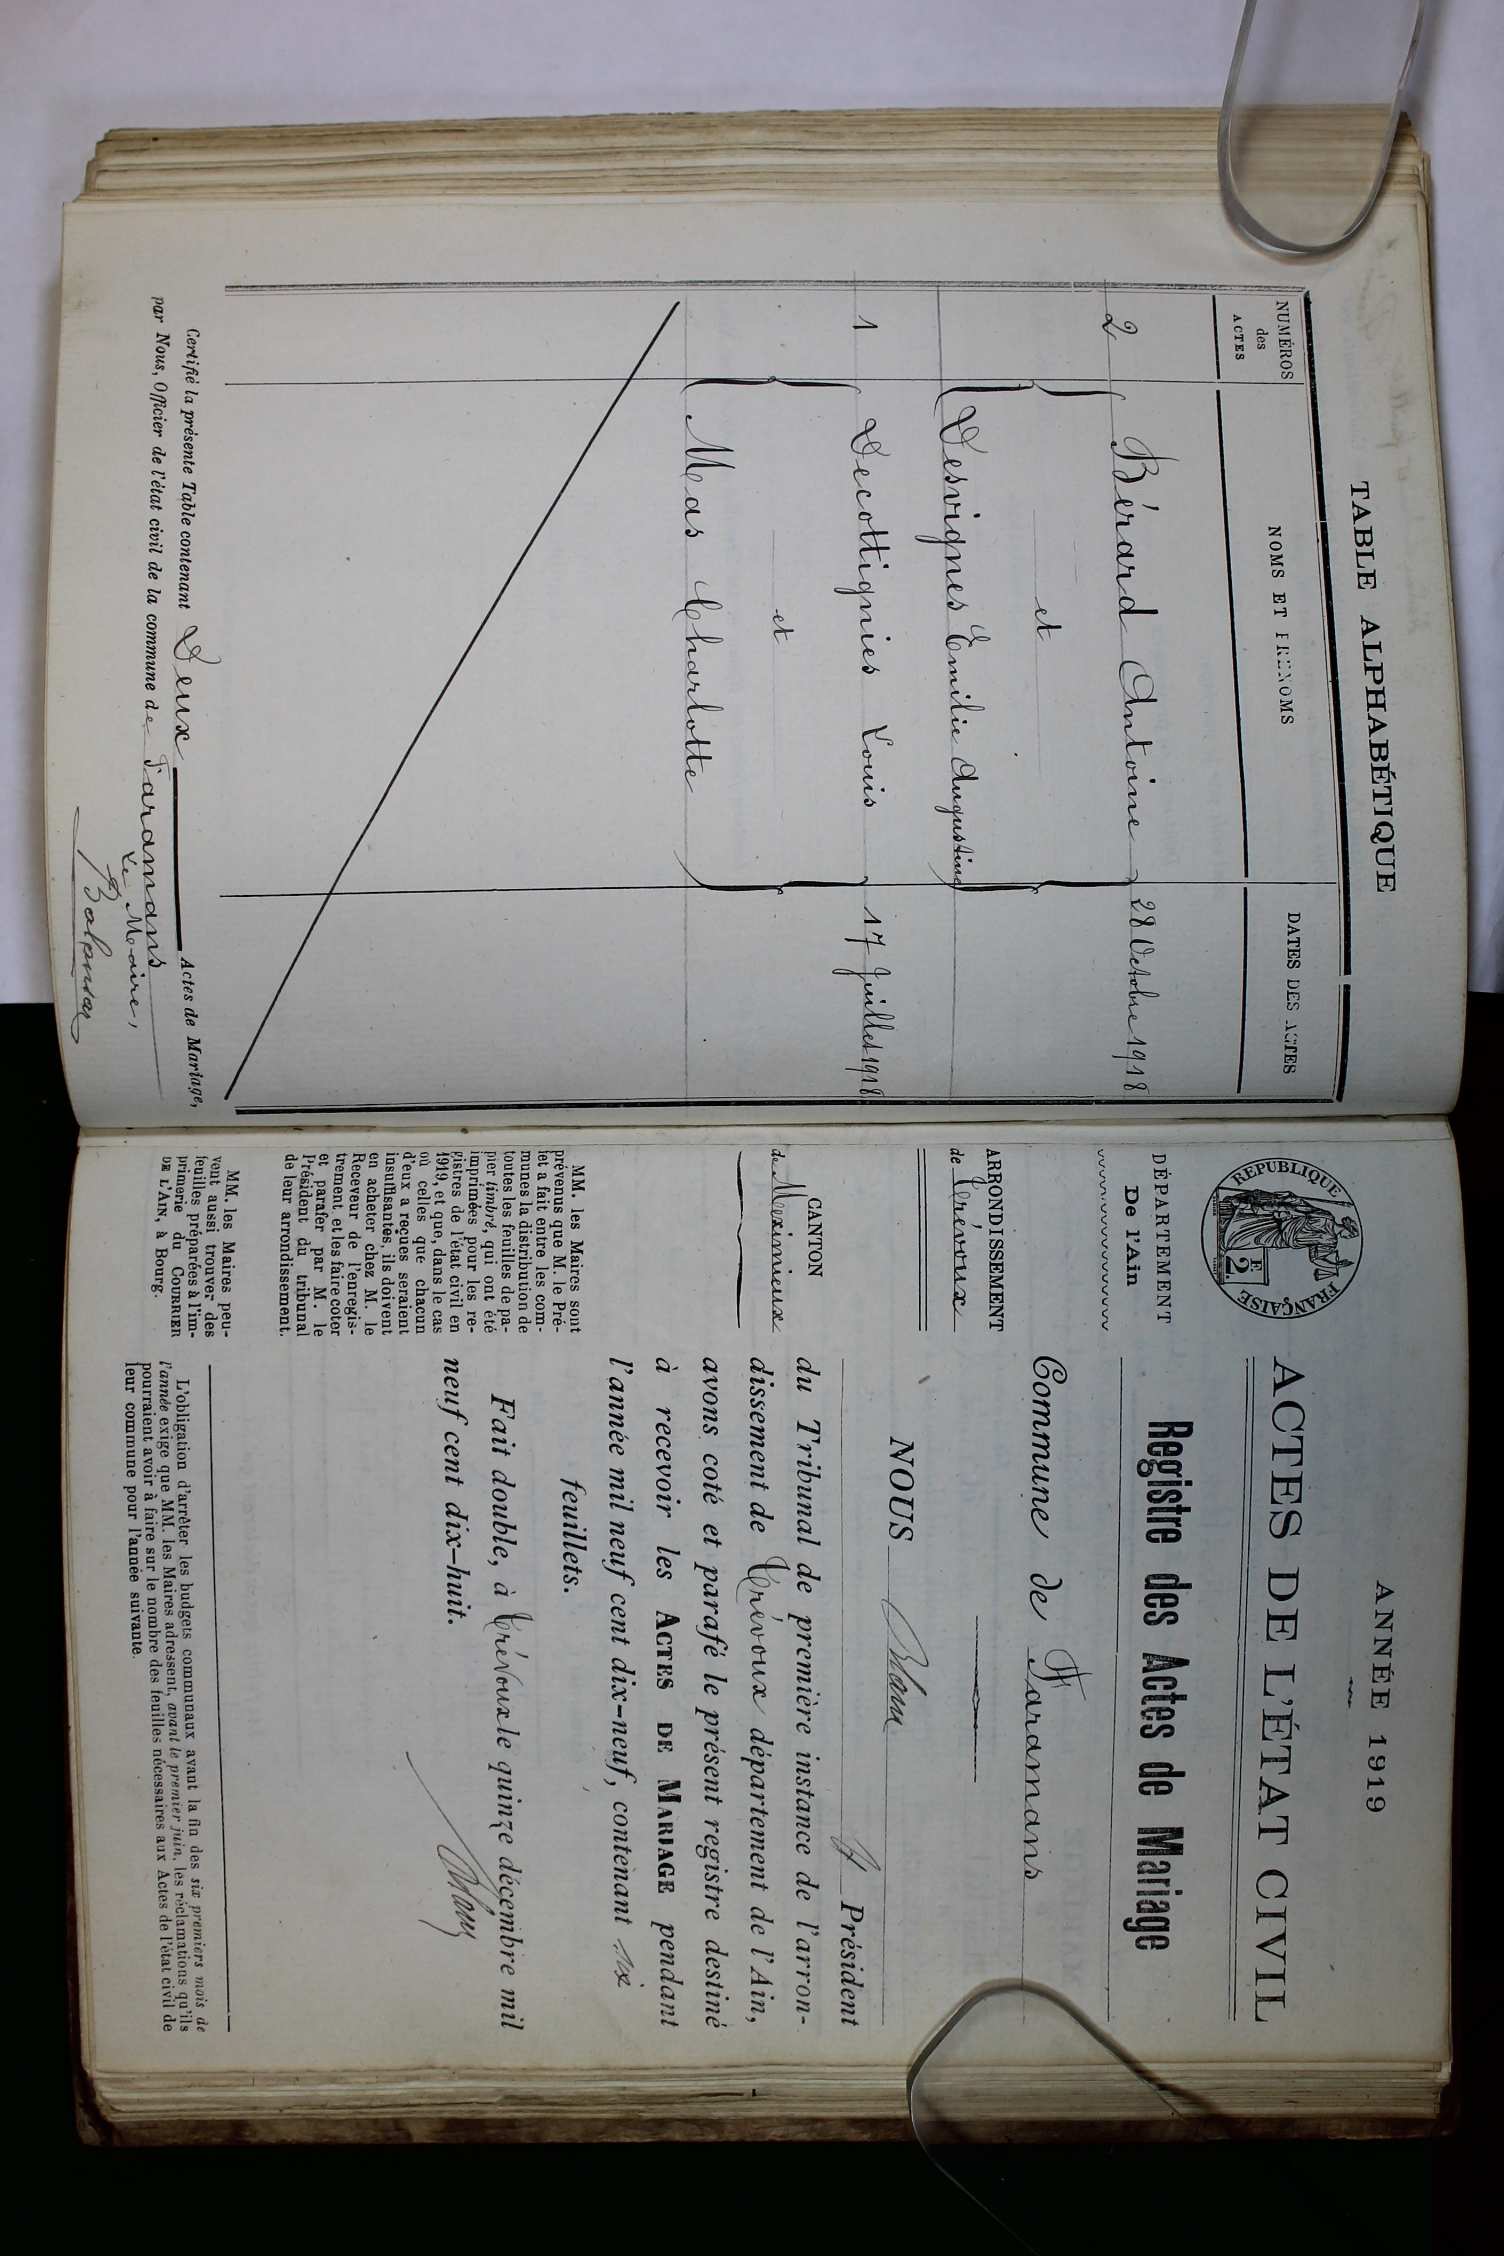 TABLE ALPHABÉTIQUE
NUMÉROS
des
ACTES
NOMS ET PRÉNOMS
DATES DES ACTES
2
Bérard Antoine
28 Octobre 1918
et
Desvignes Emilie Augustine
1
Decottignies Louis
17 Juillet 1918
et
Mas Charlotte
Certifié la présente Table contenant Deux Actes de Mariage,
par Nous, Officier de l'état civil de la commune de Faramans
Le Maire,
ANNÉE 1919
REPUBLIQUE FRANÇAISE
F.
2
ACTES DE L'ÉTAT CIVIL
DÉPARTEMENT
De l'Ain
ARRONDISSEMENT
de Trévoux
CANTON
de Meximieux
MM. les Maires sont
prévenus que M. le Pré-
let a fait entre les com-
munes la distribution de
toutes les feuilles de pa-
pier timbré, qui ont été
imprimées pour les re-
gistres de l'état civil en
1919, et que, dans le cas
où celles que chacun
d'eux a reçues seraient
insuffisantes, ils doivent
en acheter chez M. le
Receveur de l'enregis-
trement et les faire coter
et parafer par M. le
Président du tribunal
de leur arrondissement.
MM. les Maires peu-
vent aussi trouver des
feuilles préparées à l'im-
primerie du COURRIER
DE L'AIN, à Bourg.
Registre des Actes de Mariage
Commune de Faramans
NOUS
Président
du Tribunal de première instance de l'arron-
dissement de Trévoux département de l'Ain,
avons coté et parafé le présent registre destiné
à recevoir les ACTES DE MARIAGE pendant
l'année mil neuf cent dix-neuf, contenant six
feuillets.
Fait double, à Trévoux le quinze décembre mil
neuf cent dix-huit.
L'obligation d'arrêter les budgets communaux avant la fin des six premiers mois de
l'année exige que MM. les Maires adressent, avant le premier juin, les réclamations qu'ils
pourraient avoir à faire sur le nombre des feuilles nécessaires aux Actes de l'état civil de
leur commune pour l'année suivante.